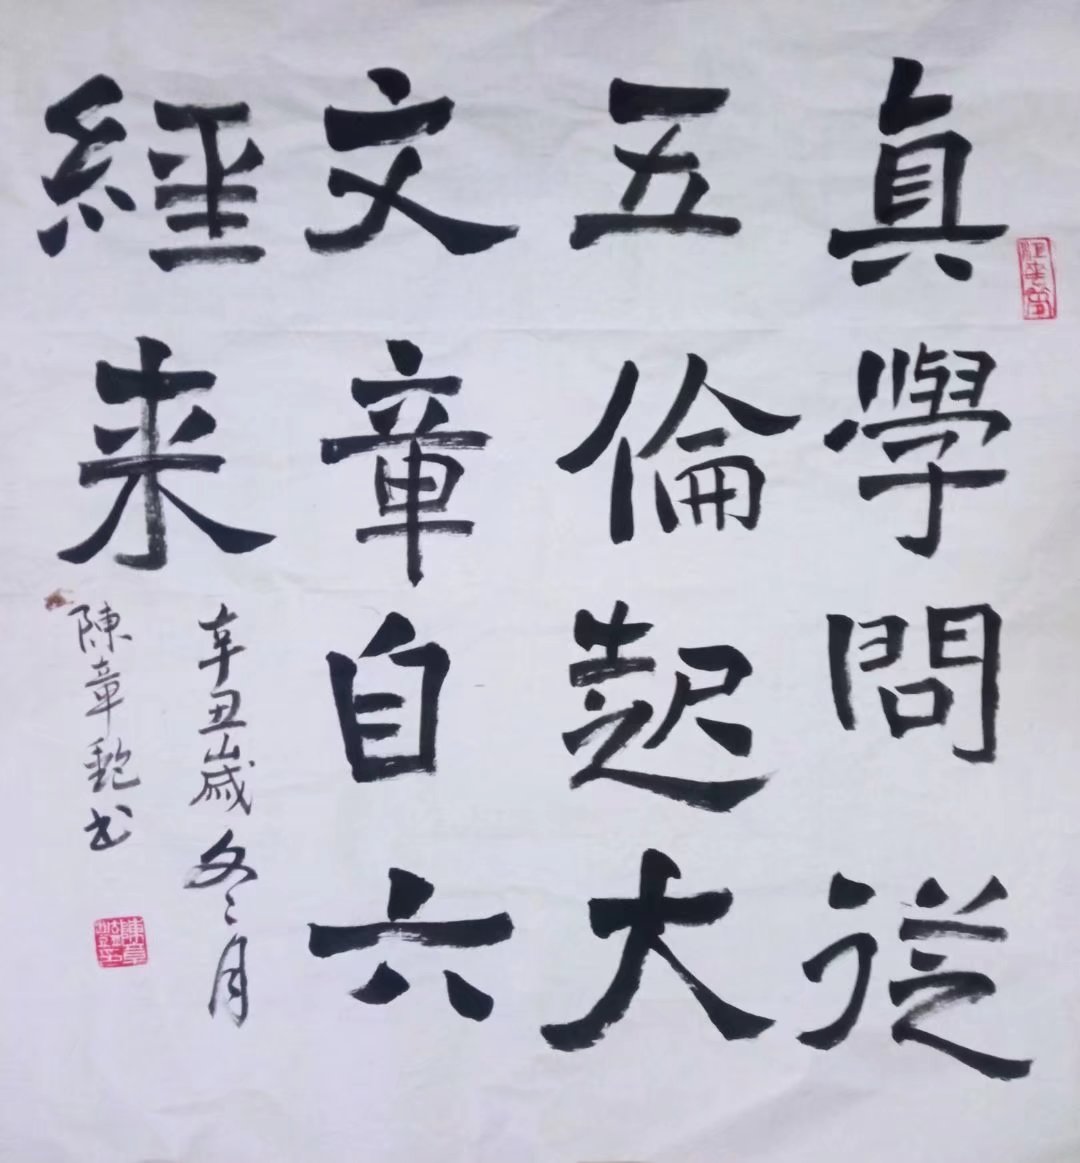 真學問從
五倫起大
文章自六
經来
辛丑歲冬月
陳章 书